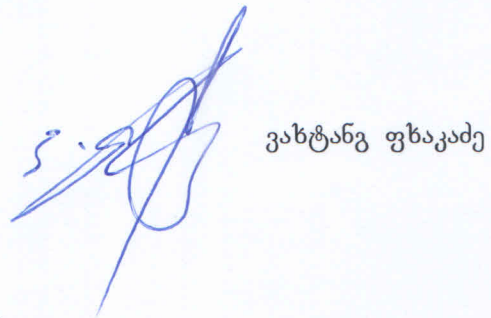 ვახტანგ ფხაკაძე